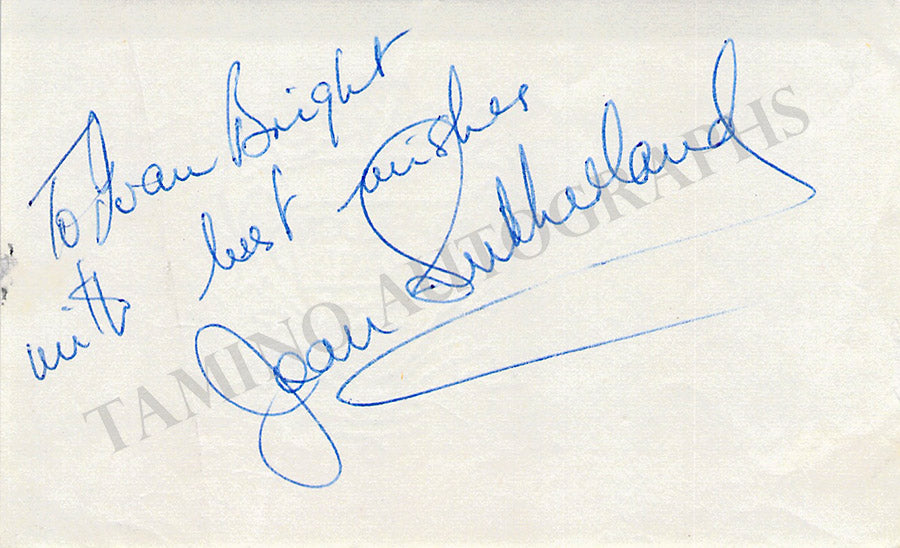 To Ivan Bright
with best wishes
Joan Sutherland
TAMINO AUTOGRAPHS